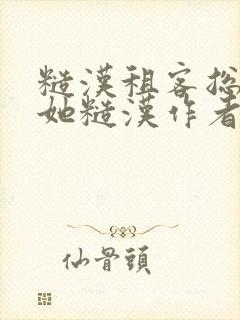 糙漢租客総
她糙漢作者
仙骨頭